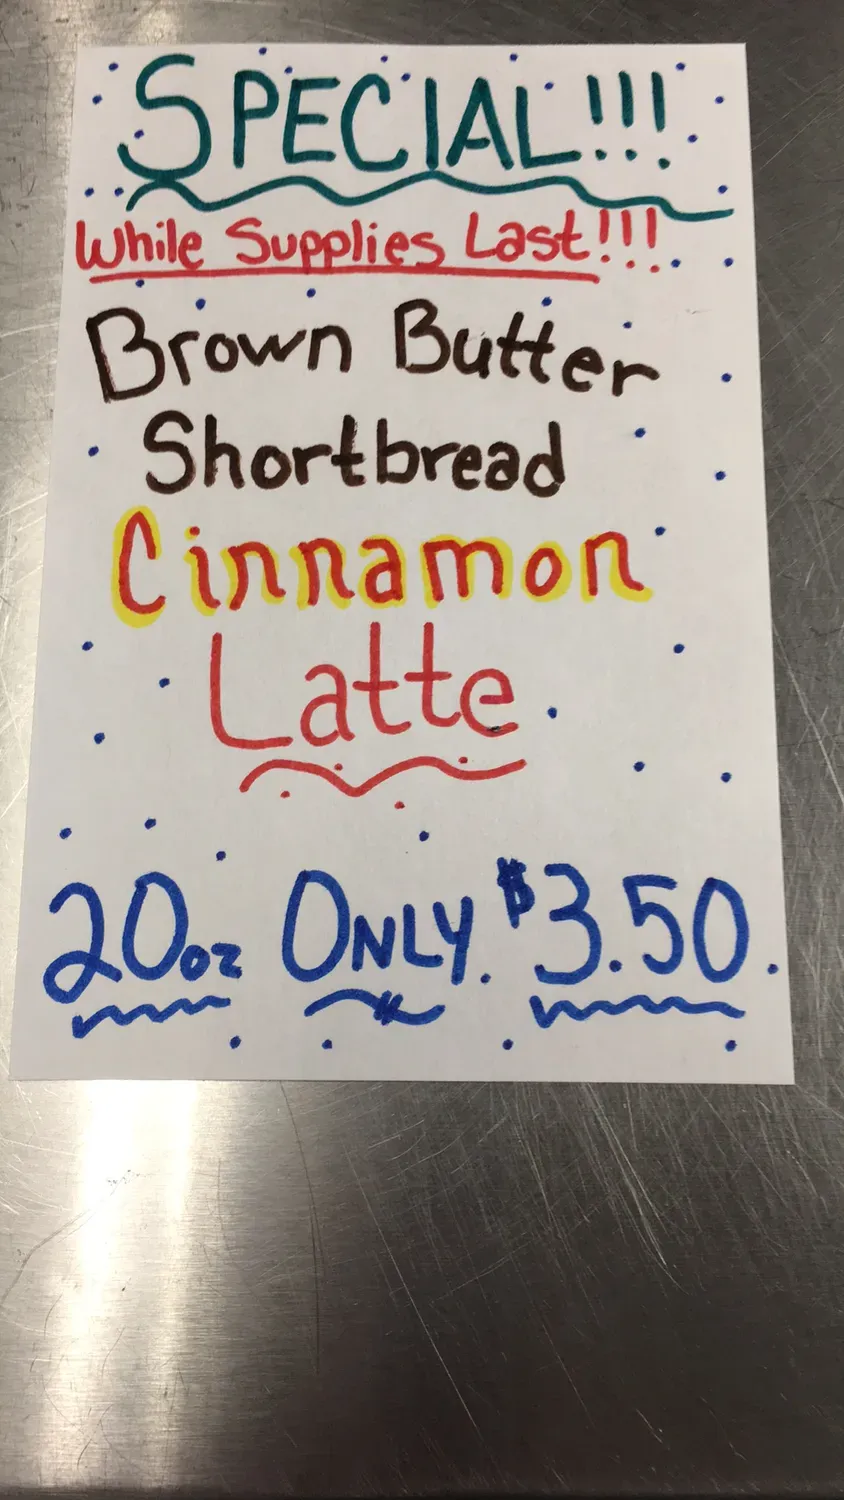 SPECIAL!!!
While Supplies Last!!!
Brown Butter
Shortbread
Cinnamon
Latte
20oz ONLY $3.50